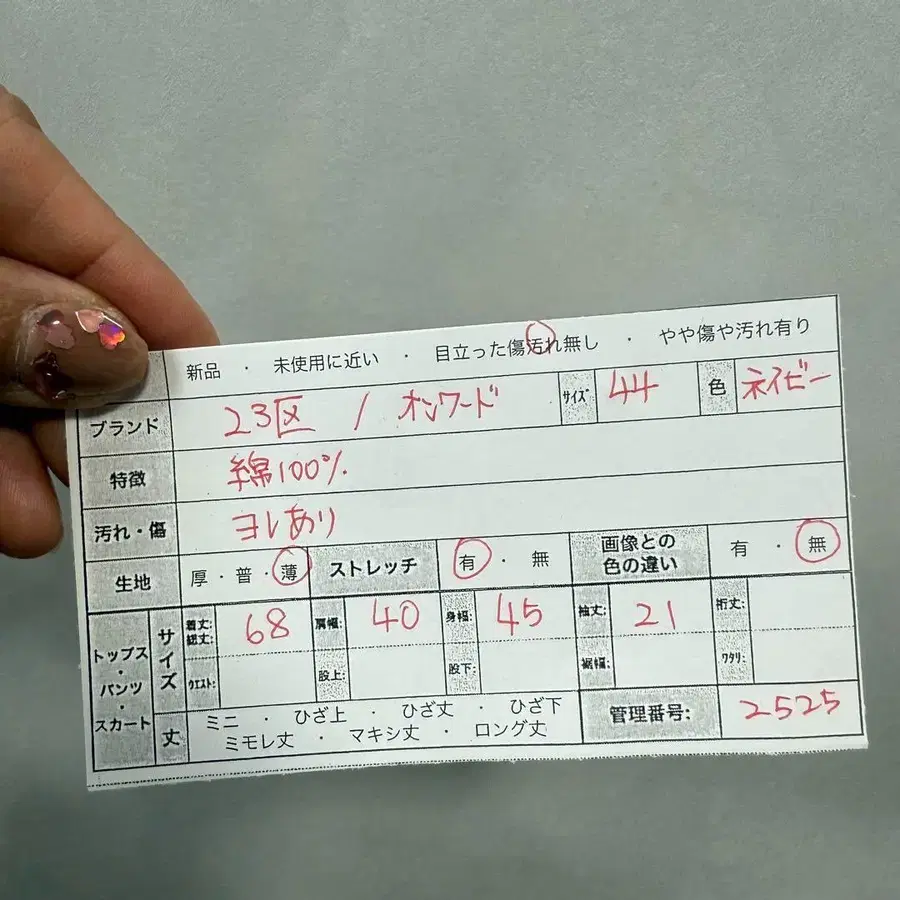 新品 ・ 未使用に近い ・ 目立った傷汚れ無し ・ やや傷や汚れ有り
ブランド 23区 / オンワード サイズ 44 色 ネイビー
特徴 綿100%
汚れ・傷 ヨレあり
生地 厚・普・薄 ストレッチ 有・無 画像との色の違い 有・無
トップス・パンツ・スカート サイズ 着丈: 総丈: 68 肩幅: 40 身幅: 45 袖丈: 21 裄丈:
ウエスト: 股上: 股下: 裾幅: ワタリ:
丈 ミニ ・ ひざ上 ・ ひざ丈 ・ ひざ下
ミモレ丈 ・ マキシ丈 ・ ロング丈
管理番号: 2525